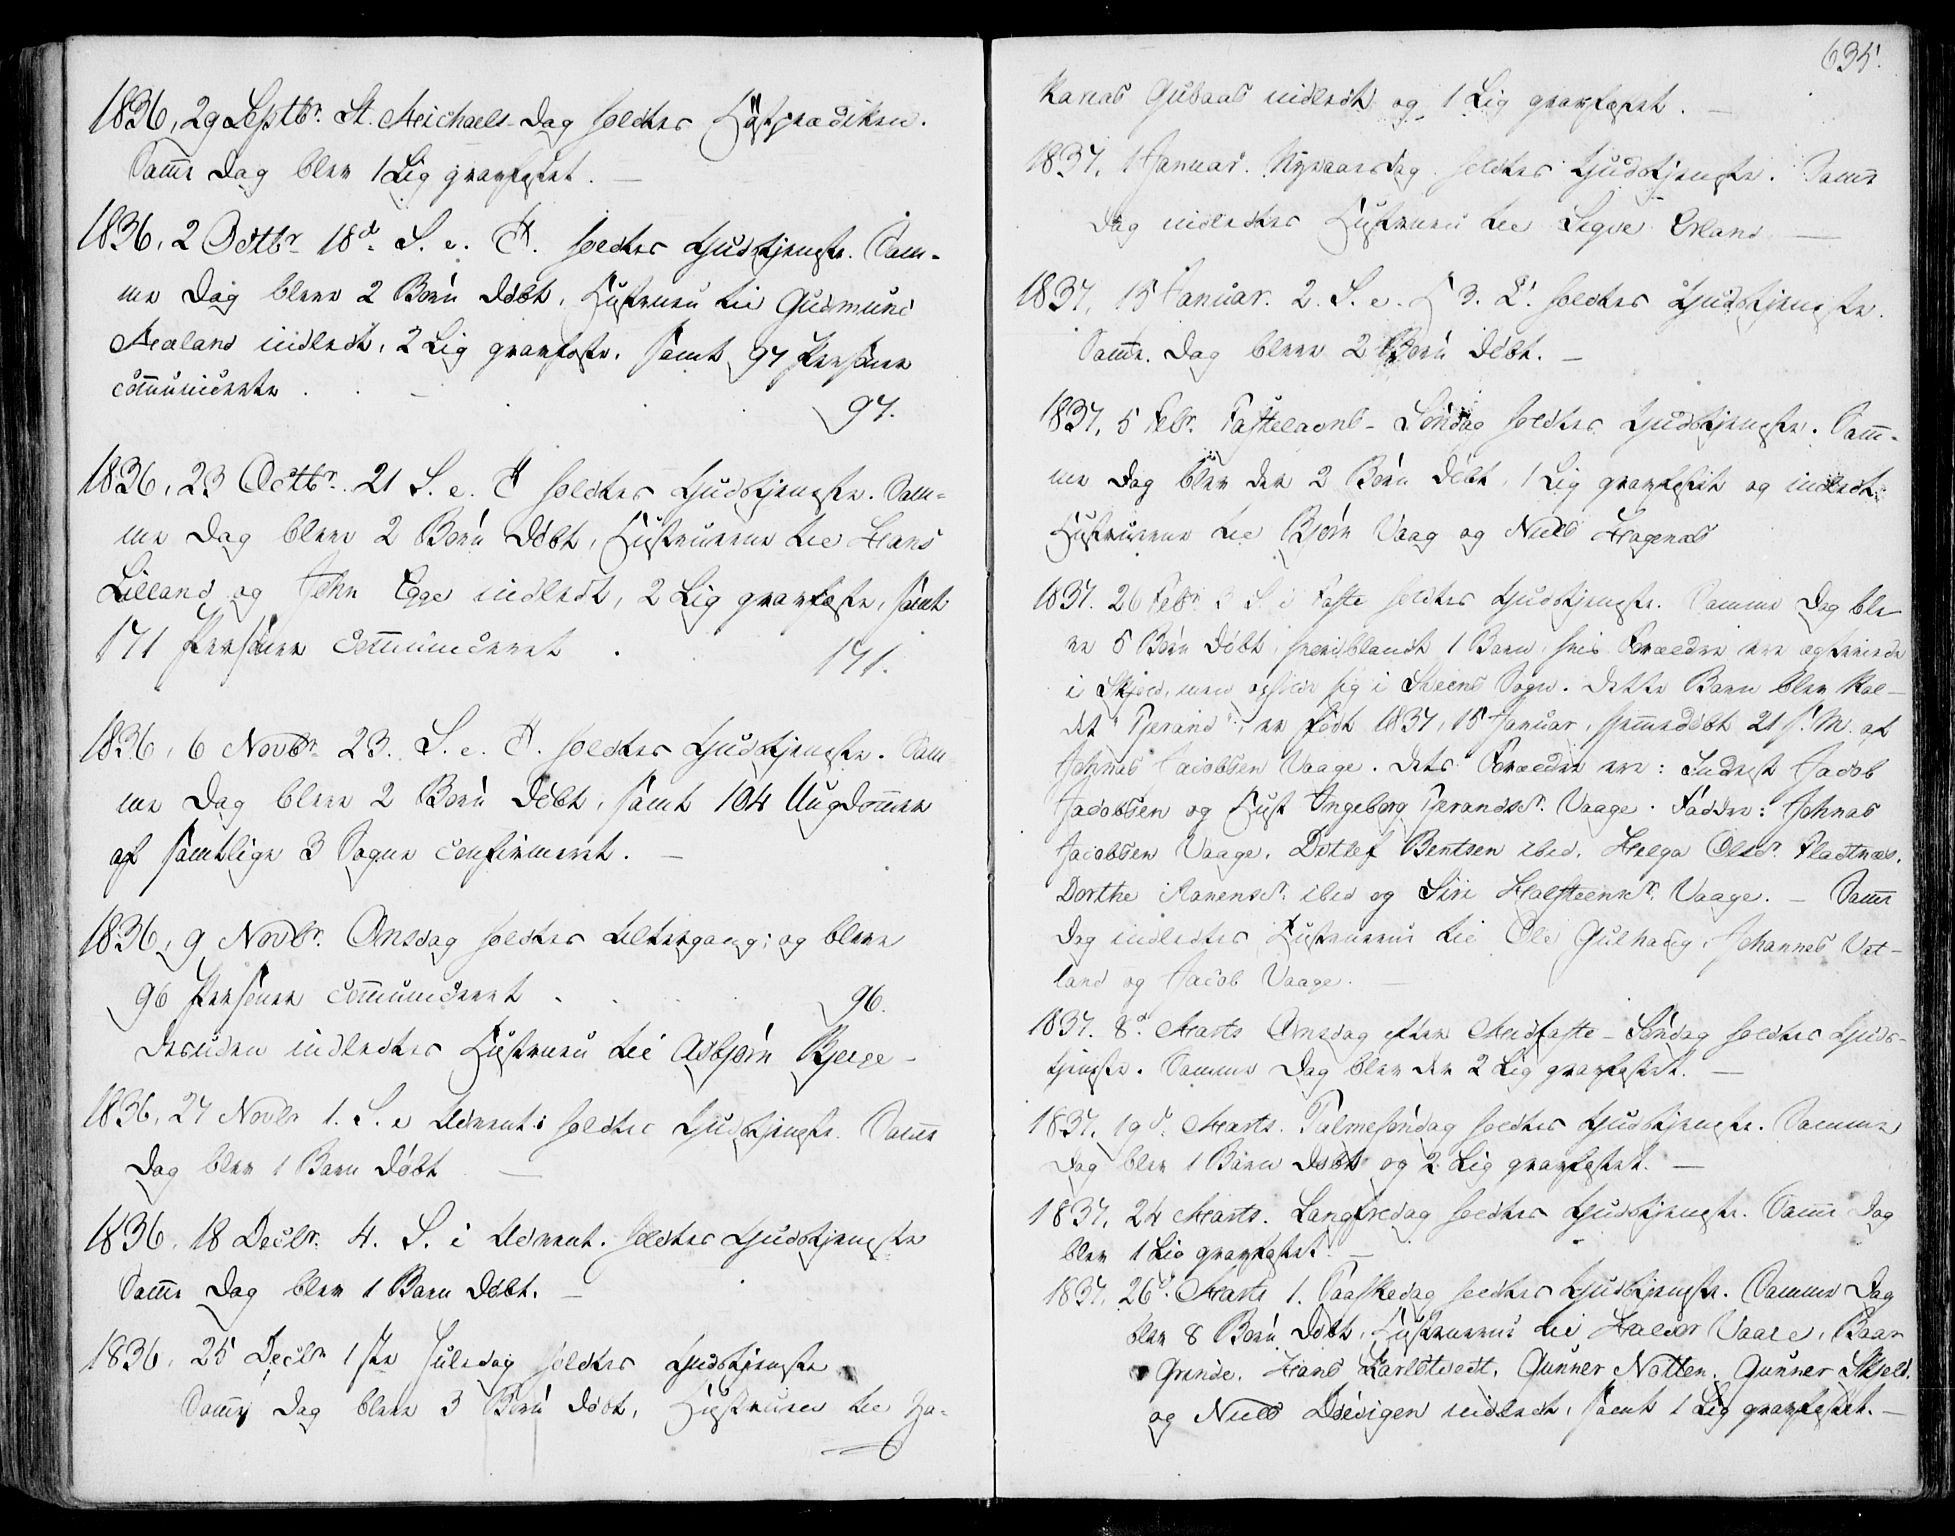 1836, 29 Septbr. St. Michaels-Dag holdtes Høstprædiken.
Samme Dag blev 1 Lig gravfæstet. —
1836, 2 Octbr. 18d. S. e. Tr. holdtes Gudstjeneste. Sam-
me Dag bleve 2 Børn døbt, Hustruen til Gudmund
Mæland indledt, 2 Lig gravfæste, samt 97 Personer
communicerte . . . . . 97.
1836, 23 Octbr. 21 S. e. Tr. holdtes Gudstjeneste. Sam-
me Dag bleve 2 Børn døbt, Hustruerne til Hans
Lilland og John Egge indledt, 2 Lig gravfæste, samt
171 Personer communiceret . 171.
1836, 6 Novbr. 23. S. e. Tr. holdtes Gudstjeneste. Sam-
me Dag bleve 2 Børn døbt, samt 104 Ungdommer
af samtlige 3 Sogne confirmeret. —
1836, 9 Novbr. Onsdag holdtes Altergang; og bleve
96 Personer communiceret . . . 96.
desuden indledtes Hustruen til Asbjørn Bjerge —
1836, 27 Novbr 1. S. e Advent: holdtes Gudstjeneste. Samme
Dag blev 1 Barn døbt —
1836, 18 Decbr. 4. S. i Advent. holdtes Gudstjeneste
Samme Dag blev 1 Barn døbt. —
1836, 25 Decbr 1ste Juledag holdtes Gudstjeneste
Samme Dag bleve 3 Børn døbt, Hustruen til Za-
635.
karias Gusaas indledt og 1 Lig gravfæstet. —
1837, 1 Januar. Nyeaarsdag holdtes Gudstjeneste. Samme
Dag indledtes Hustruen til Sigve Erland —
1837, 15 Januar. 2. S. e. H. 3. K. holdtes Gudstjeneste.
Samme Dag bleve 2 Børn døbt. —
1837, 5 Febr. Fastelavns-Søndag holdtes Gudstjeneste. Sam-
me Dag blev der 2 Børn døbt, 1 Lig gravfæstet og indledt
Hustruerne til Bjørn Vaag og Niels Hagenæs
1837. 26 Febr. 3 S. i Faste holdtes Gudstjeneste. Samme Dag ble-
ve 5 Børn døbt, hvoriblandt 1 Barn, hvis Forældre ere egteviede
i Skjold, men opholde sig i Skeens Sogn. Dette Barn blev kal-
det "Tjerand", er født 1837, 15 Januar, hjemmedøbt 21 s. M. af
Johnas Jacobsen Vaage. Dets Forældre ere: Inderst Jacob
Jacobsen og Hust Ingeborg Tjerandsdr. Vaage. Faddre: Johnas
Jacobsen Vaage, Detlef Bentsen ibid. Helga Olsdr. Fladtnæs,
Dorthe ibid og Siri Halfteensdr. Vaage. — Samme
Dag indledtes Hustruerne til Ole Gulhaug, Johannes Vat-
land og Jacob Vaage. —
1837. 8d. Marts Onsdag efter Midfaste-Søndag holdtes Guds-
tjeneste. Samme Dag blev der 2 Lig gravfæstet. —
1837. 19d. Marts. Palmesøndag holdtes Gudstjeneste. Samme
Dag blev 1 Barn døbt og 2 Lig gravfæstet. —
1837. 24 Marts. Langfredag holdtes Gudstjeneste. Samme Dag
blev 1 Lig gravfæstet. —
1837. 26d. Marts 1. Paaskedag holdtes Gudstjeneste. Samme Dag
blev 8 Børn døbt, Hustruerne til Haldor Vaage, Baar
Grinde, Hans Karlstvedt, Gunner Notten, Gunner Skjold,
og Niels Døvigen indledt, samt 1 Lig gravfæstet. —